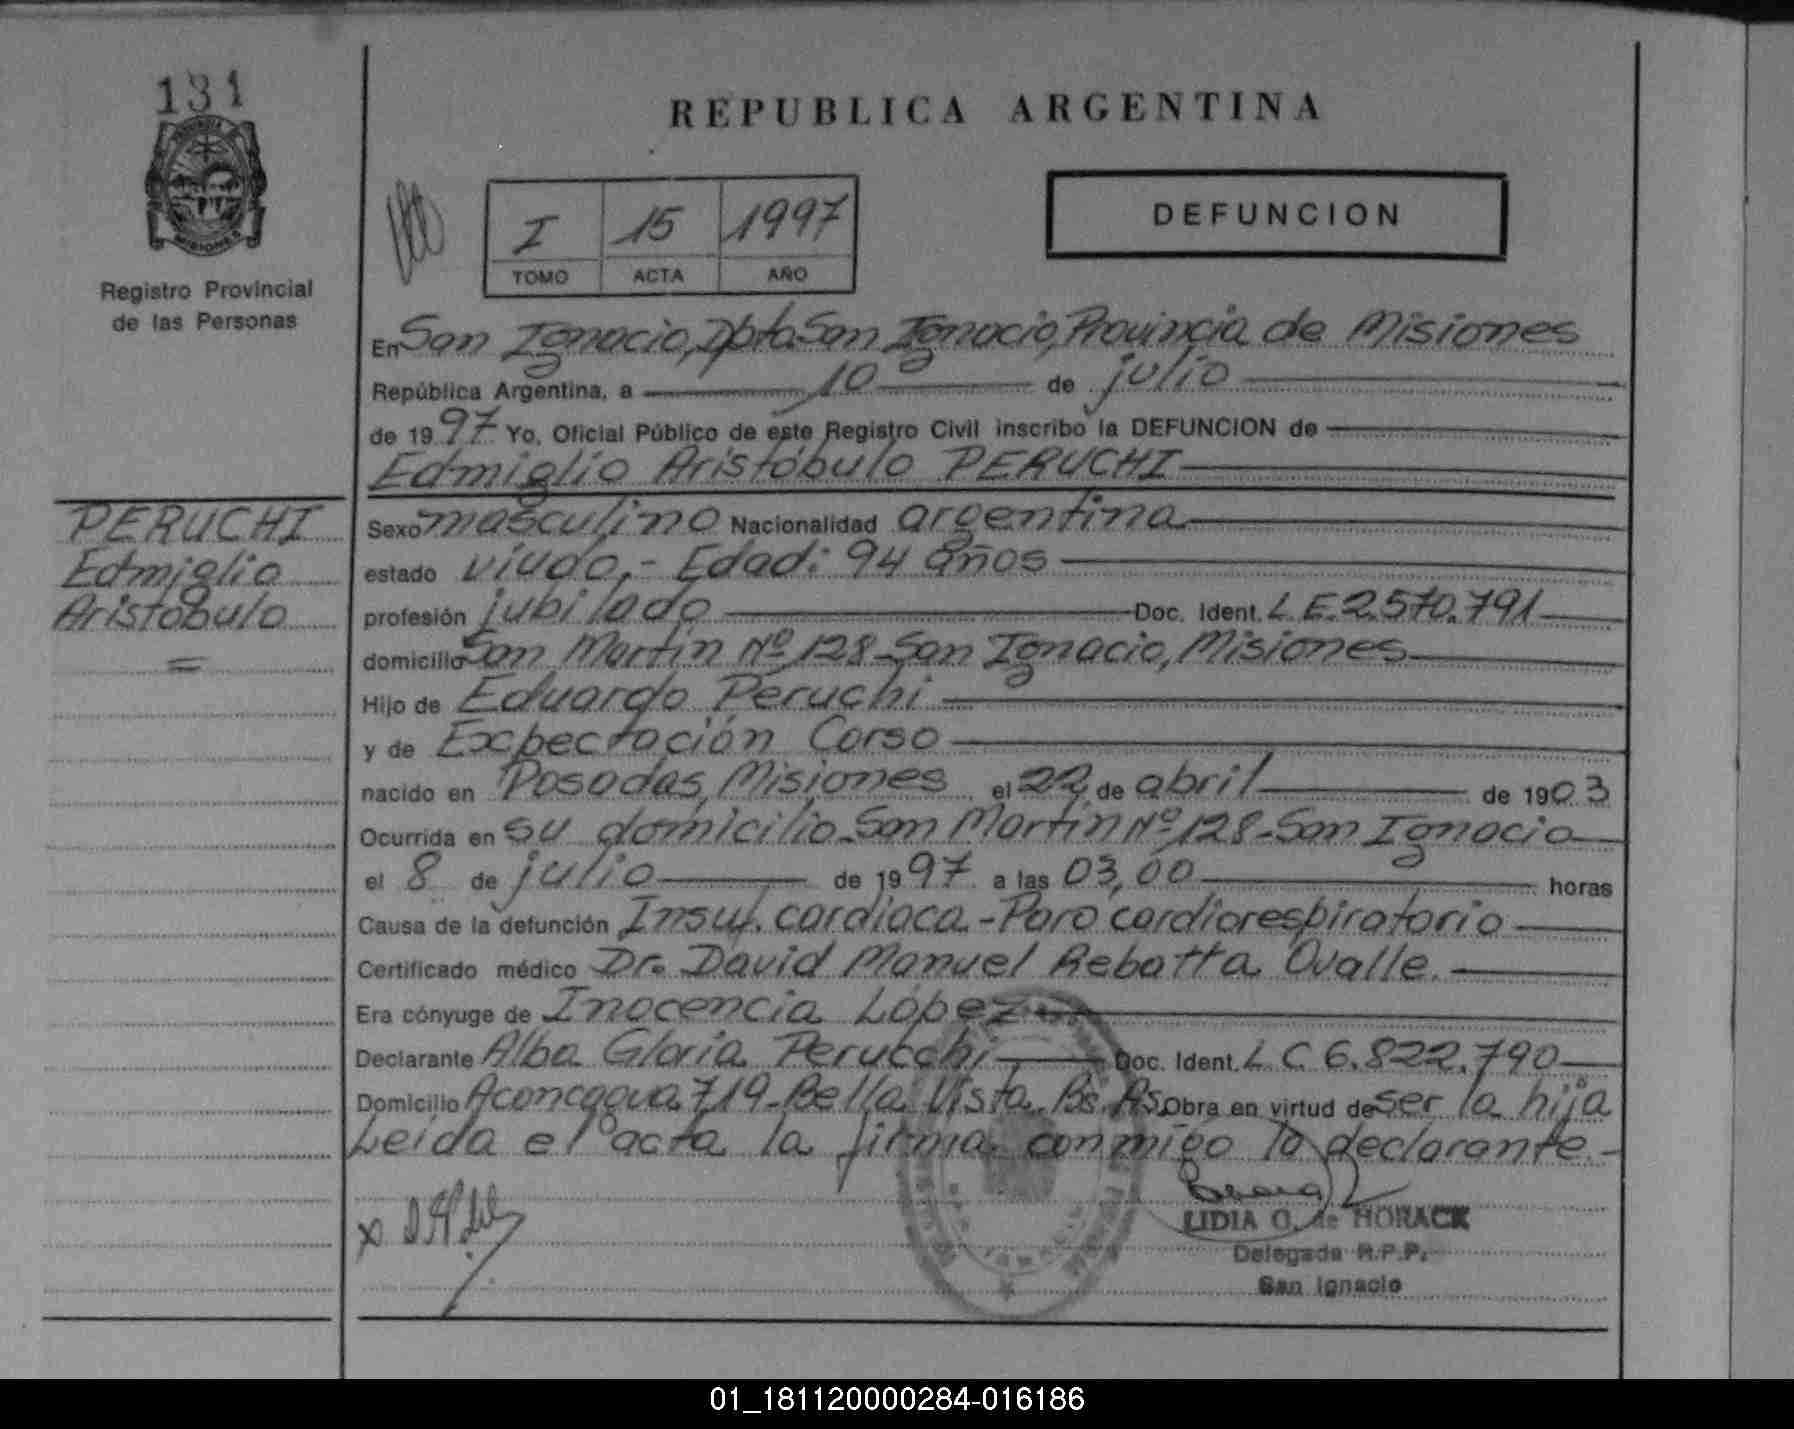 131
MISIONES
Registro Provincial
de las Personas
PERUCHI
Edmiglio
Aristóbulo
=
REPUBLICA ARGENTINA
I 15 1997
TOMO ACTA AÑO
DEFUNCION
En San Ignacio, Dpto San Ignacio, Provincia de Misiones
República Argentina, a 10 de julio
de 1997 Yo, Oficial Público de este Registro Civil inscribo la DEFUNCION de
Edmiglio Aristóbulo PERUCHI
Sexo masculino Nacionalidad argentina
estado viudo.- Edad: 94 años
profesión jubilado Doc. Ident. L.E. 2.570.791
domicilio San Martín Nº 128-San Ignacio, Misiones
Hijo de Eduardo Peruchi
y de Expectación Corso
nacido en Posadas, Misiones el 22 de abril de 1903
Ocurrida en su domicilio-San Martín Nº 128-San Ignacio
el 8 de julio de 1997 a las 03,00 horas
Causa de la defunción Insuf. cardíaca-Paro cardiorespiratorio
Certificado médico Dr. David Manuel Rebatta Ovalle.
Era cónyuge de Inocencia López
Declarante Alba Gloria Perucchi Doc. Ident. L.C. 6.822.790
Domicilio Aconcagua 719-Bella Vista. Bs. As. Obra en virtud de ser la hija
Leída el acta la firma conmigo la declarante.-
x
LIDIA O. de HORACK
Delegada R.P.P.
San Ignacio
01_181120000284-016186